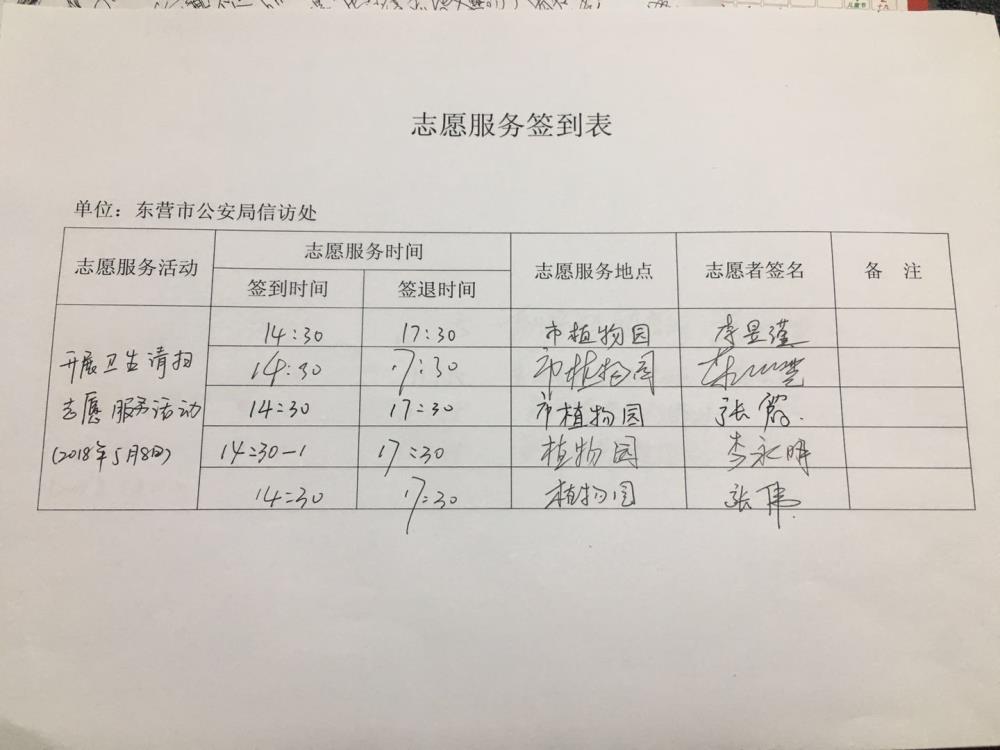 志愿服务签到表
单位：东营市公安局信访处
志愿服务活动 志愿服务时间 志愿服务地点 志愿者签名 备 注
签到时间 签退时间
14:30 17:30 市植物园 李昱瑾
开展卫生请扫
14:30 17:30 市植物园
志愿服务活动
14:30 17:30 市植物园 张
(2018年5月8日)
14:30-1 17:30 植物园 李永明
14:30 17:30 植物园 张伟